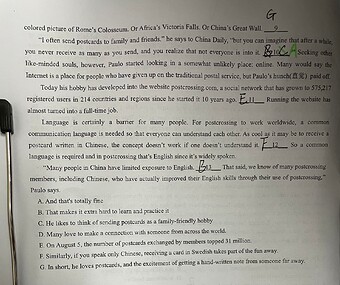 G
colored picture of Rome's Colosseum. Or Africa's Victoria Falls. Or China's Great Wall. 9
"I often send postcards to family and friends." he says to China Daily, "but you can imagine that after a while,
you never receive as many as you send, and you realize that not everyone is into it. 10 C A Seeking other
like-minded souls, however, Paulo started looking in a somewhat unlikely place: online. Many would say the
Internet is a place for people who have given up on the traditional postal service, but Paulo's hunch(直觉) paid off.
Today his hobby has developed into the website postcrossing.com, a social network that has grown to 575,217
registered users in 214 countries and regions since he started it 10 years ago. E 11 Running the website has
almost turned into a full-time job.
Language is certainly a barrier for many people. For postcrossing to work worldwide, a common
communication language is needed so that everyone can understand each other. As cool as it may be to receive a
postcard written in Chinese, the concept doesn't work if one doesn't understand it. F 12 So a common
language is required and in postcrossing that's English since it's widely spoken.
"Many people in China have limited exposure to English. B 13 That said, we know of many postcrossing
members, including Chinese, who have actually improved their English skills through their use of postcrossing,"
Paulo says.
A. And that's totally fine
B. That makes it extra hard to learn and practice it
C. He likes to think of sending postcards as a family-friendly hobby
D. Many love to make a connection with someone from across the world.
E. On August 5, the number of postcards exchanged by members topped 31 million.
F. Similarly, if you speak only Chinese, receiving a card in Swedish takes part of the fun away.
G. In short, he loves postcards, and the excitement of getting a hand-written note from someone far away.